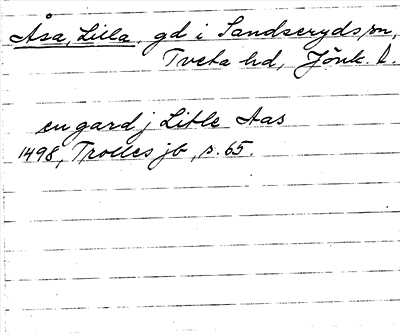 Åsa, Lilla, gd i Sandseryds sn,
Tveta hd, Jönk. l.
en gard j Litle Aas
1498, Trolles jb, s. 65.